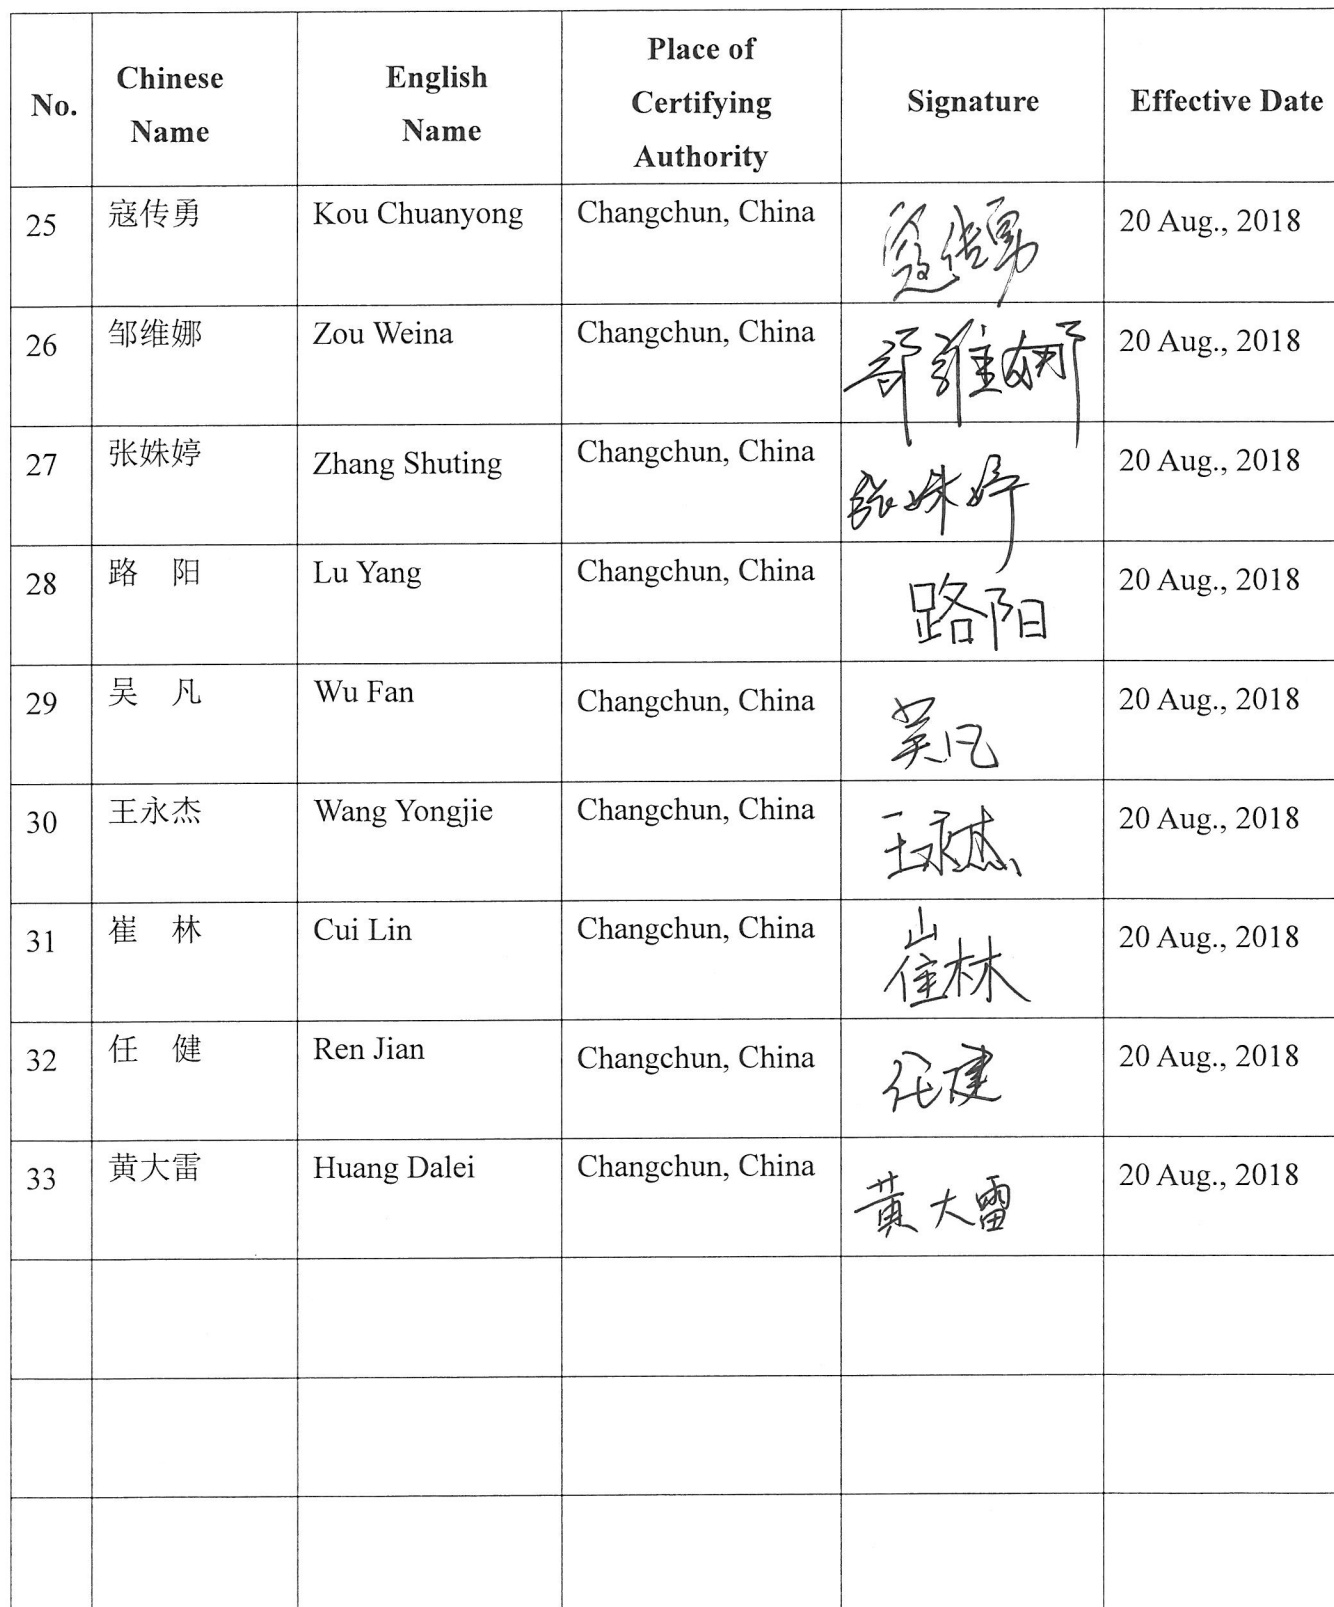 No. Chinese Name English Name Place of Certifying Authority Signature Effective Date
25 寇传勇 Kou Chuanyong Changchun, China 寇传勇 20 Aug., 2018
26 邹维娜 Zou Weina Changchun, China 邹维娜 20 Aug., 2018
27 张姝婷 Zhang Shuting Changchun, China 张姝婷 20 Aug., 2018
28 路 阳 Lu Yang Changchun, China 路阳 20 Aug., 2018
29 吴 凡 Wu Fan Changchun, China 吴凡 20 Aug., 2018
30 王永杰 Wang Yongjie Changchun, China 王永杰 20 Aug., 2018
31 崔 林 Cui Lin Changchun, China 崔林 20 Aug., 2018
32 任 健 Ren Jian Changchun, China 任健 20 Aug., 2018
33 黄大雷 Huang Dalei Changchun, China 黄大雷 20 Aug., 2018